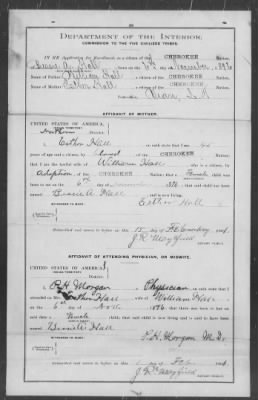 DEPARTMENT OF THE INTERIOR,
COMMISSION TO THE FIVE CIVILIZED TRIBES.
IN RE Application for Enrollment, as a citizen of the CHEROKEE Nation,
Hall, born on the 6th day of November, 1896
Name of Father: William Hall a citizen of the CHEROKEE Nation.
Name of Mother: Esther Hall a citizen of the CHEROKEE Nation.
Postoffice
AFFIDAVIT OF MOTHER.
UNITED STATES OF AMERICA,
INDIAN TERRITORY,
Northern District.
I, Esther Hall, on oath state that I am
years of age and a citizen by blood, of the CHEROKEE Nation;
that I am the lawful wife of William Hall, who is a citizen, by
Adoption of the CHEROKEE Nation; that a Female child was
born to me on the 6th day of November, 1896, that said child has been
named Hall, and is now living.
Esther Hall
WITNESSES TO MARK:
Subscribed and sworn to before me this 15 day of February
J.R. Mayfield
AFFIDAVIT OF ATTENDING PHYSICIAN, OR MIDWIFE.
UNITED STATES OF AMERICA,
INDIAN TERRITORY,
District.
I, P.H. Morgan, a Physician, on oath state that I
attended on Mrs. Esther Hall, wife of William Hall
on the 6th day of Nov, 1896, that there was born to her on said date a
Female child; that said child is now living and is said to have been
named Hall
P.H. Morgan M.D.
WITNESSES TO MARK:
Subscribed and sworn to before me this day of Feb
J.R. Mayfield